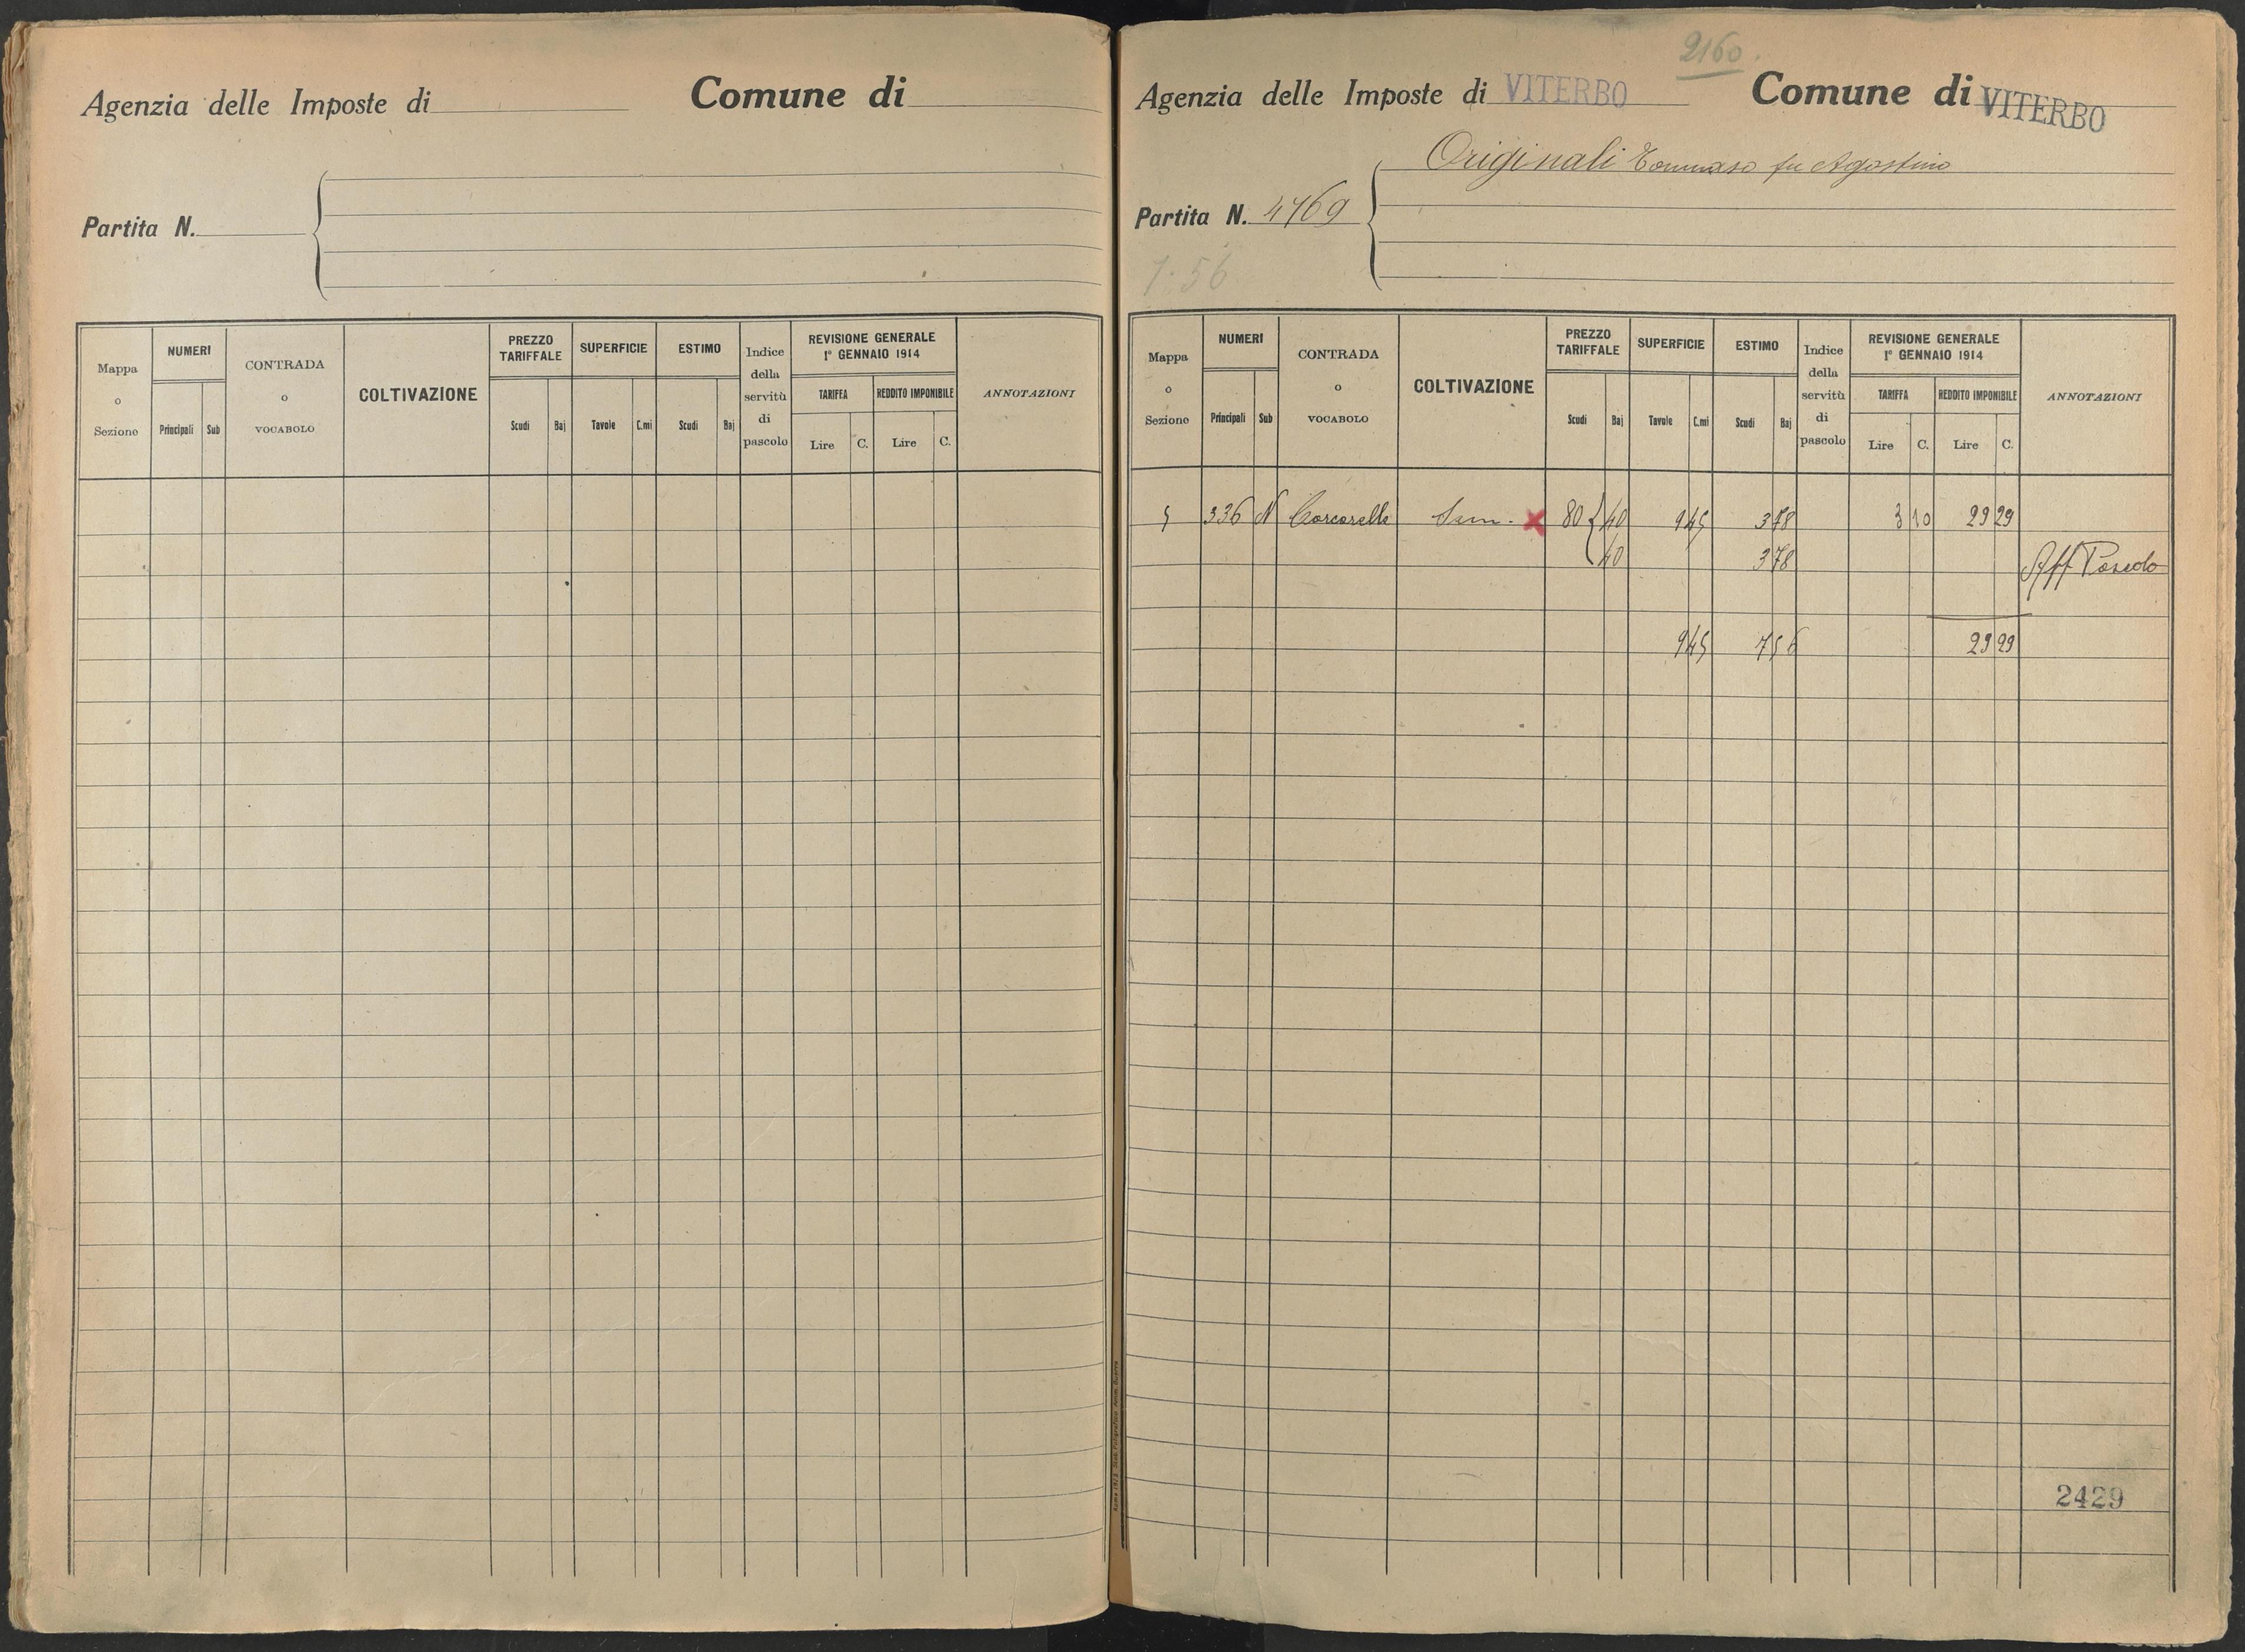 Agenzia delle Imposte di Comune di
Partita N.
Mappa o Sezione
NUMERI
Principali Sub
CONTRADA o VOCABOLO
COLTIVAZIONE
PREZZO TARIFFALE
Scudi Baj
SUPERFICIE
Tavole C.mi
ESTIMO
Scudi Baj
Indice della servitù di pascolo
REVISIONE GENERALE
1° GENNAIO 1914
TARIFFA REDDITO IMPONIBILE
Lire C. Lire C.
ANNOTAZIONI
2160.
Agenzia delle Imposte di VITERBO Comune di VITERBO
Originali Tommaso fu Agostino
Partita N. 4769
7.56
Mappa o Sezione
NUMERI
Principali Sub
CONTRADA o VOCABOLO
COLTIVAZIONE
PREZZO TARIFFALE
Scudi Baj
SUPERFICIE
Tavole C.mi
ESTIMO
Scudi Baj
Indice della servitù di pascolo
REVISIONE GENERALE
1° GENNAIO 1914
TARIFFA REDDITO IMPONIBILE
Lire C. Lire C.
ANNOTAZIONI
5 336 N Sem. x 80 { 40 945 378 3 10 29 29
40 378
Aff
945 756 29 29
2429